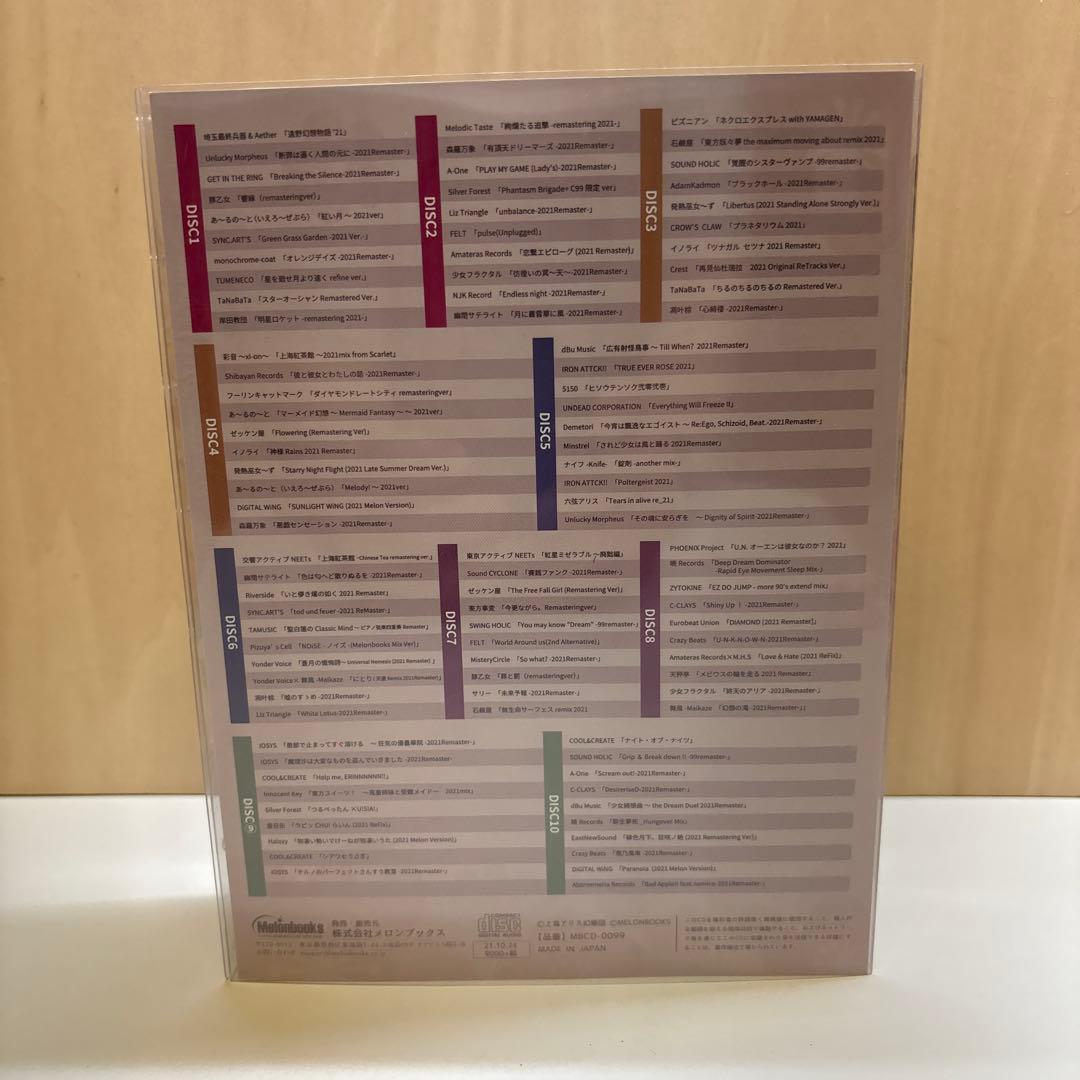 DISC1
埼玉最終兵器 & Aether 「遠野幻想物語 '21」
Unlucky Morpheus 「断罪は遍く人間の元に -2021Remaster-」
GET IN THE RING 「Breaking the Silence-2021Remaster-」
豚乙女 「響縁 (remasteringver)」
あ～るの～と（いえろ～ぜぶら） 「紅い月 ～ 2021ver」
SYNC.ART'S 「Green Grass Garden -2021 Ver.-」
monochrome-coat 「オレンジデイズ -2021Remaster-」
TUMENECO 「星を廻せ月より速く refine ver.」
TaNaBaTa 「スターオーシャン Remastered Ver.」
岸田教団 「明星ロケット -remastering 2021-」
DISC2
Melodic Taste 「絢爛たる追撃 -remastering 2021-」
森羅万象 「有頂天ドリーマーズ -2021Remaster-」
A-One 「PLAY MY GAME (Lady's)-2021Remaster-」
Silver Forest 「Phantasm Brigade+ C99 限定 ver」
Liz Triangle 「unbalance-2021Remaster-」
FELT 「pulse(Unplugged)」
Amateras Records 「恋繋エピローグ (2021 Remaster)」
少女フラクタル 「彷徨いの冥～天～-2021Remaster-」
NJK Record 「Endless night -2021Remaster-」
幽閉サテライト 「月に叢雲華に風 -2021Remaster-」
DISC3
ビズニアン 「ネクロエクスプレス with YAMAGEN」
石鹸屋 「東方妖々夢 the maximum moving about remix 2021」
SOUND HOLIC 「覚醒のシスターヴァンプ -99remaster-」
AdamKadmon 「ブラックホール -2021Remaster-」
発熱巫女～ず 「Libertus (2021 Standing Alone Strongly Ver.)」
CROW'S CLAW 「プラネタリウム 2021」
イノライ 「ツナガル セツナ 2021 Remaster」
Crest 「再見仙杜瑞拉 2021 Original ReTracks Ver.」
TaNaBaTa 「ちるのちるのちるの Remastered Ver.」
凋叶棕 「心綺楼 -2021Remaster-」
DISC4
彩音 ～xi-on～ 「上海紅茶館 ～2021mix from Scarlet」
Shibayan Records 「彼と彼女とわたしの話 -2021Remaster-」
フーリンキャットマーク 「ダイヤモンドレートシティ remasteringver」
あ～るの～と 「マーメイド幻想 ～ Mermaid Fantasy ～ ～ 2021ver」
ゼッケン屋 「Flowering (Remastering Ver)」
イノライ 「神様 Rains 2021 Remaster」
発熱巫女～ず 「Starry Night Flight (2021 Late Summer Dream Ver.)」
あ～るの～と（いえろ～ぜぶら） 「Melody! ～ 2021ver」
DiGiTAL WiNG 「SUNLiGHT WiNG (2021 Melon Version)」
森羅万象 「悪戯センセーション -2021Remaster-」
DISC5
dBu Music 「広有射怪鳥事 ～ Till When? 2021Remaster」
IRON ATTCK!! 「TRUE EVER ROSE 2021」
5150 「ヒソウテンソク弐零弐壱」
UNDEAD CORPORATION 「Everything Will Freeze II」
Demetori 「今宵は飄逸なエゴイスト ～ Re:Ego, Schizoid, Beat.-2021Remaster-」
Minstrel 「されど少女は風と踊る 2021Remaster」
ナイフ -Knife- 「錠剤 -another mix-」
IRON ATTCK!! 「Poltergeist 2021」
六弦アリス 「Tears in alive re_21」
Unlucky Morpheus 「その魂に安らぎを ～ Dignity of Spirit-2021Remaster-」
DISC6
交響アクティブ NEETs 「上海紅茶館 -Chinese Tea remastering ver.」
幽閉サテライト 「色は匂へど散りぬるを -2021Remaster-」
Riverside 「いと儚き燿の如く 2021 Remaster」
SYNC.ART'S 「tod und feuer -2021 ReMaster-」
TAMUSIC 「聖白蓮の Classic Mind～ ピアノ弦楽四重奏 Remaster」
Pizuya's Cell 「NOiSE - ノイズ -(Melonbooks Mix Ver)」
Yonder Voice 「蒼月の懺悔詩～ Universal Nemesis (2021 Remaster)」
Yonder Voice× 舞風 -Maikaze 「にとり(天道 Remix 2021Remaster)」
凋叶棕 「嘘のすゝめ -2021Remaster-」
Liz Triangle 「White Lotus-2021Remaster-」
DISC7
東京アクティブ NEETs 「紅星ミゼラブル ～廃獄編」
Sound CYCLONE 「賽銭ファンク -2021Remaster-」
ゼッケン屋 「The Free Fall Girl (Remastering Ver)」
東方事変 「今更ながら。Remasteringver」
SWING HOLIC 「You may know "Dream" -99remaster-」
FELT 「World Around us(2nd Alternative)」
MisteryCircle 「So what? -2021Remaster-」
豚乙女 「罪と罰 (remasteringver)」
サリー 「未来予報 -2021Remaster-」
石鹸屋 「無生命サーフェス remix 2021
DISC8
PHOENIX Project 「U.N. オーエンは彼女なのか？ 2021」
暁 Records 「Deep Dream Dominator
-Rapid Eye Movement Sleep Mix-」
ZYTOKINE 「EZ DO JUMP - more 90's extend mix」
C-CLAYS 「Shiny Up ！ -2021Remaster-」
Eurobeat Union 「DIAMOND [2021 Remaster]」
Crazy Beats 「U-N-K-N-O-W-N-2021Remaster」
Amateras Records×M.H.S 「Love & Hate (2021 ReFix)」
天秤亭 「メビウスの輪を走る 2021 Remaster」
少女フラクタル 「終天のアリア -2021Remaster-」
舞風 -Maikaze 「幻想の滝 -2021Remaster-」」
DISC⑨
IOSYS 「患部で止まってすぐ溶ける ～ 狂気の優曇華院 -2021Remaster-」
IOSYS 「魔理沙は大変なものを盗んでいきました -2021Remaster-
COOL&CREATE 「Help me, ERINNNNNN!!」
Innocent Key 「東方スイーツ！ ～鬼畜姉妹と受難メイド～ 2021mix」
Silver Forest 「つるぺったん ×U!SIA!」
魂音泉 「ウビッ CHU! らいん (2021 ReFix)」
Halozy 「物凄い勢いでけーねが物凄いうた (2021 Melon Version)」
COOL&CREATE 「シアワセうさぎ」
IOSYS 「チルノのパーフェクトさんすう教室 -2021Remaster-」
DISC10
COOL&CREATE 「ナイト・オブ・ナイツ」
SOUND HOLIC 「Grip & Break down !! -99remaster-」
A-One 「Scream out!-2021Remaster-」
C-CLAYS 「DesireriseD-2021Remaster-」
dBu Music 「少女綺想曲 ～ the Dream Duel 2021Remaster」
暁 Records 「酔生夢死 _Hungover Mix」
EastNewSound 「緋色月下、狂咲ノ絶 (2021 Remastering Ver)」
Crazy Beats 「亜乃亜亜 -2021Remaster-」
DiGiTAL WiNG 「Paranoia (2021 Melon Version)」
Alstroemeria Records 「Bad Apple!! feat.nomico-2021Remaster-」
Melonbooks
発売・販売元
株式会社メロンブックス
COMPACT
disc
DIGITAL AUDIO
21.10.24
9000+税
©上海アリス幻樂団 ©MELONBOOKS
【品番】MBCD-0099
MADE IN JAPAN